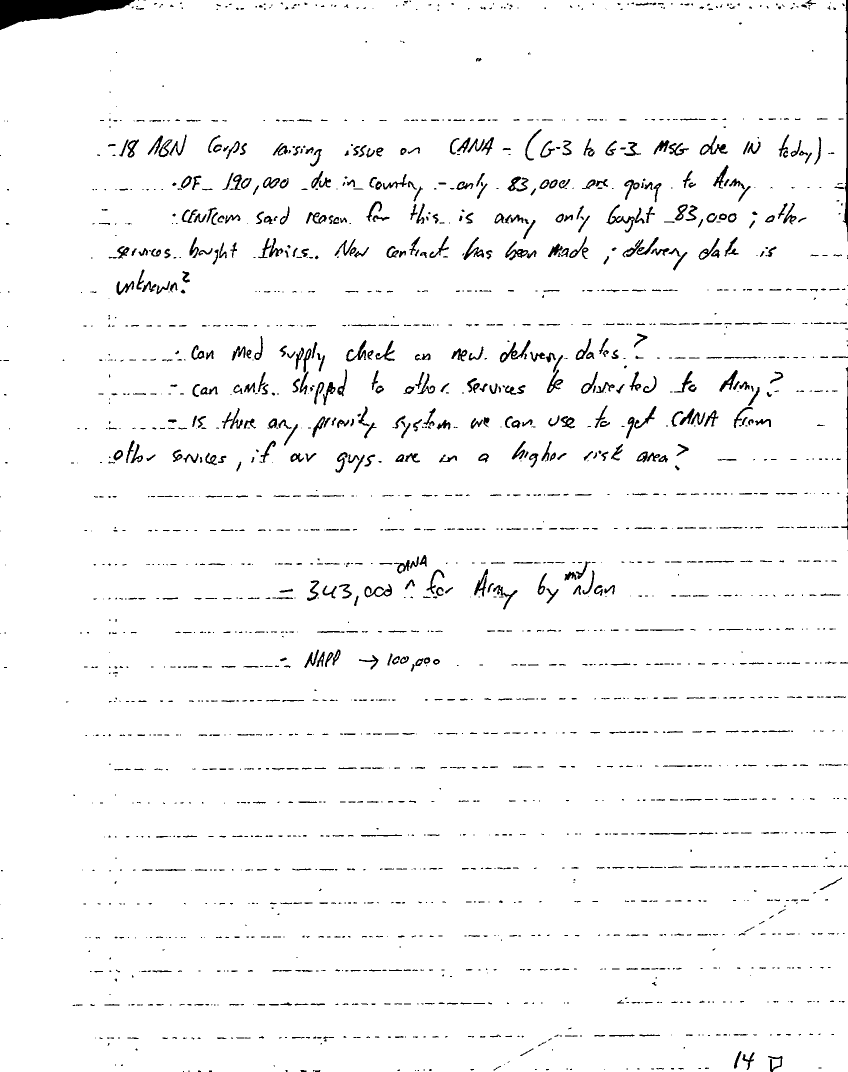 - 18 ABN Corps raising issue on CANA - (G-3 to G-3 MSG due IN today) -
· OF 190,000 due in country - only 83,000 are going to Army
· CENTCOM said reason for this is army only bought 83,000 ; other
services bought theirs. New contract has been made ; delivery date is
unknown?
- Can Med supply check on new delivery dates?
- Can amts. shipped to other services be diverted to Army?
- Is there any priority system we can use to get CANA from
other services, if our guys are in a higher risk area?
- 343,000 ^ CANA for Army by ^ mid Jan
- NAPP → 100,000
14